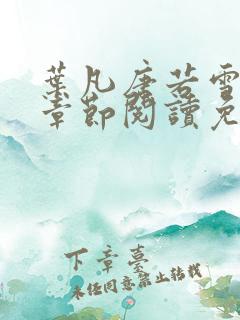 葉凡唐若雪
章節閱讀免
下章臺
未經同意禁止轉載